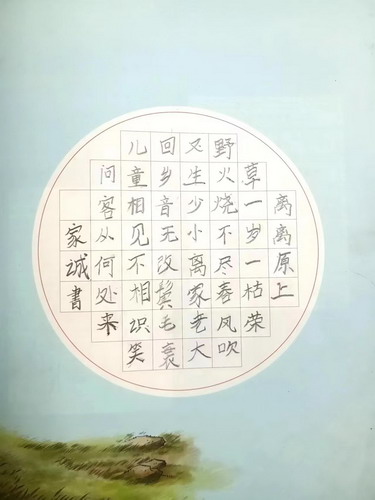 离离原上
草一岁一枯荣
野火烧不尽春风吹
又生少小离家老大
回乡音无改鬓毛衰
儿童相见不相识笑
问客从何处来
家诚書